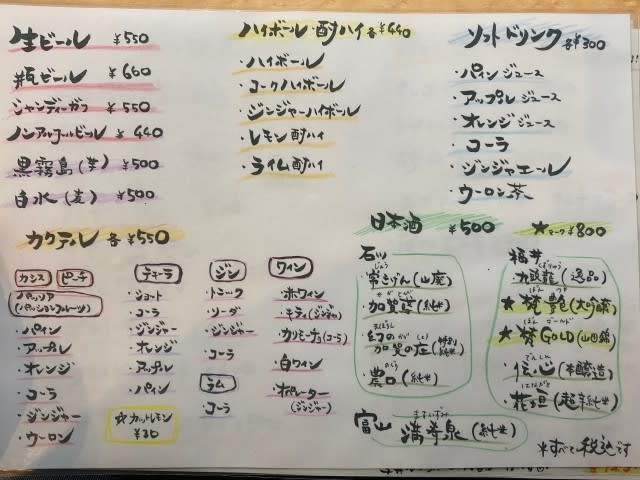 生ビール ¥550
瓶ビール ¥660
シャンディーガフ ¥550
ノンアルコールビール ¥440
黒霧島(芋) ¥500
白水(麦) ¥500
ハイボール・酎ハイ 各¥440
・ハイボール
・コークハイボール
・ジンジャーハイボール
・レモン酎ハイ
・ライム酎ハイ
ソフトドリンク 各¥300
・パインジュース
・アップルジュース
・オレンジジュース
・コーラ
・ジンジャエール
・ウーロン茶
カクテル 各¥550
カシス ピーチ
パッソア
(パッションフルーツ)
・パイン
・アップル
・オレンジ
・コーラ
・ジンジャー
・ウーロン
テキーラ
・ショット
・コーラ
・ジンジャー
・オレンジ
・アップル
・パイン
☆カットレモン
¥30
ジン
・トニック
・ソーダ
・ジンジャー
・コーラ
ラム
・コーラ
ワイン
・赤ワイン
・キティ(ジンジャー)
・カリモーチョ(コーラ)
・白ワイン
・オペレーター
(ジンジャー)
日本酒 ¥500
★マーク¥800
石川
じょう
・常きげん(山廃)
かがとび
・加賀鳶(純米)
まぼろし
・幻の
加賀の庄(特別純米)
のぐち
・農口(純米)
福井
・九頭龍(逸品)
ぼん
★梵 艶(大吟醸)
ぼん ゴールド
★梵GOLD(山田錦)
でんしん
・伝心(本醸造)
はながき
・花垣(超辛純米)
富山
ますいずみ
満寿泉(純米)
※すべて税込です